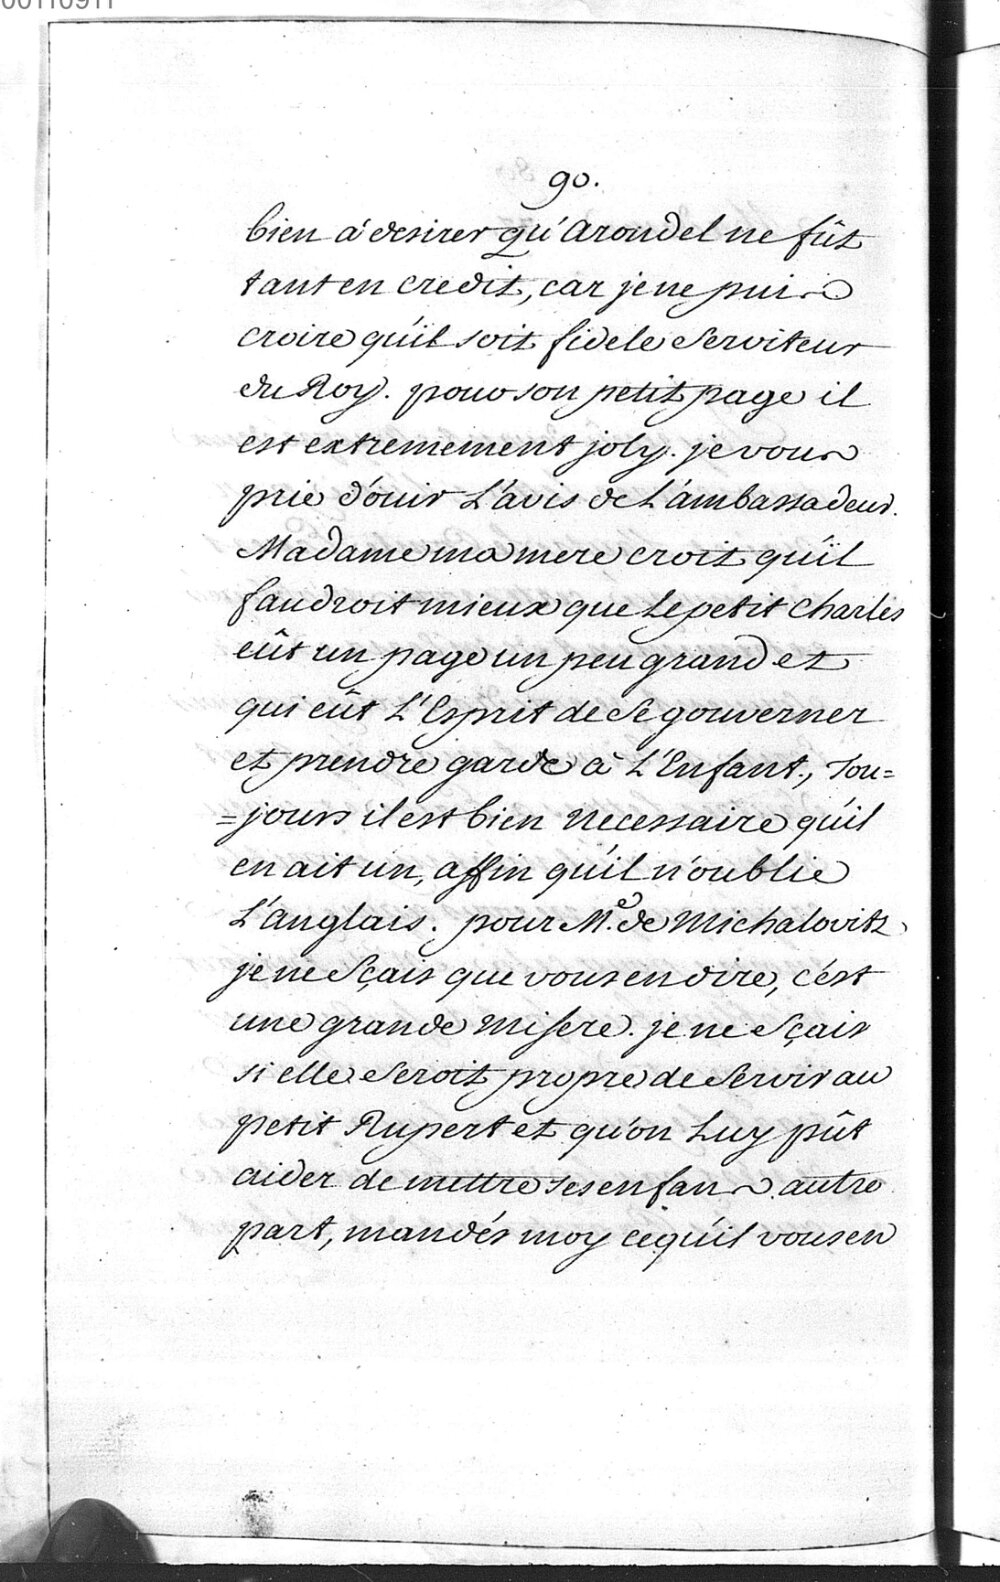 00110911
90.
bien à desirer qu'Arondel ne fût
tant en credit, car je ne puis
croire qu'il soit fidele Serviteur
du Roy. pour son petit page il
est extremement joly. je vous
prie d'ouir L'avis de L'ambassadeur.
Madame ma mere croit qu'il
faudroit mieux que Le petit Charles
eût un page un peu grand et
qui eût L'Esprit de Se gouverner
et prendre garde à L'Enfant, Tou=
=jours il est bien necessaire qu'il
en ait un, affin qu'il n'oublie
L'anglais. pour Me. de Michalovitz
je ne Sçais que vous en dire, c'est
une grande misere. je ne Sçais
si elle Seroit propre de Servir au
petit Rupert et qu'on Luy pût
aider de mettre ses enfans autre
part, mandés moy ce qu'il vous en